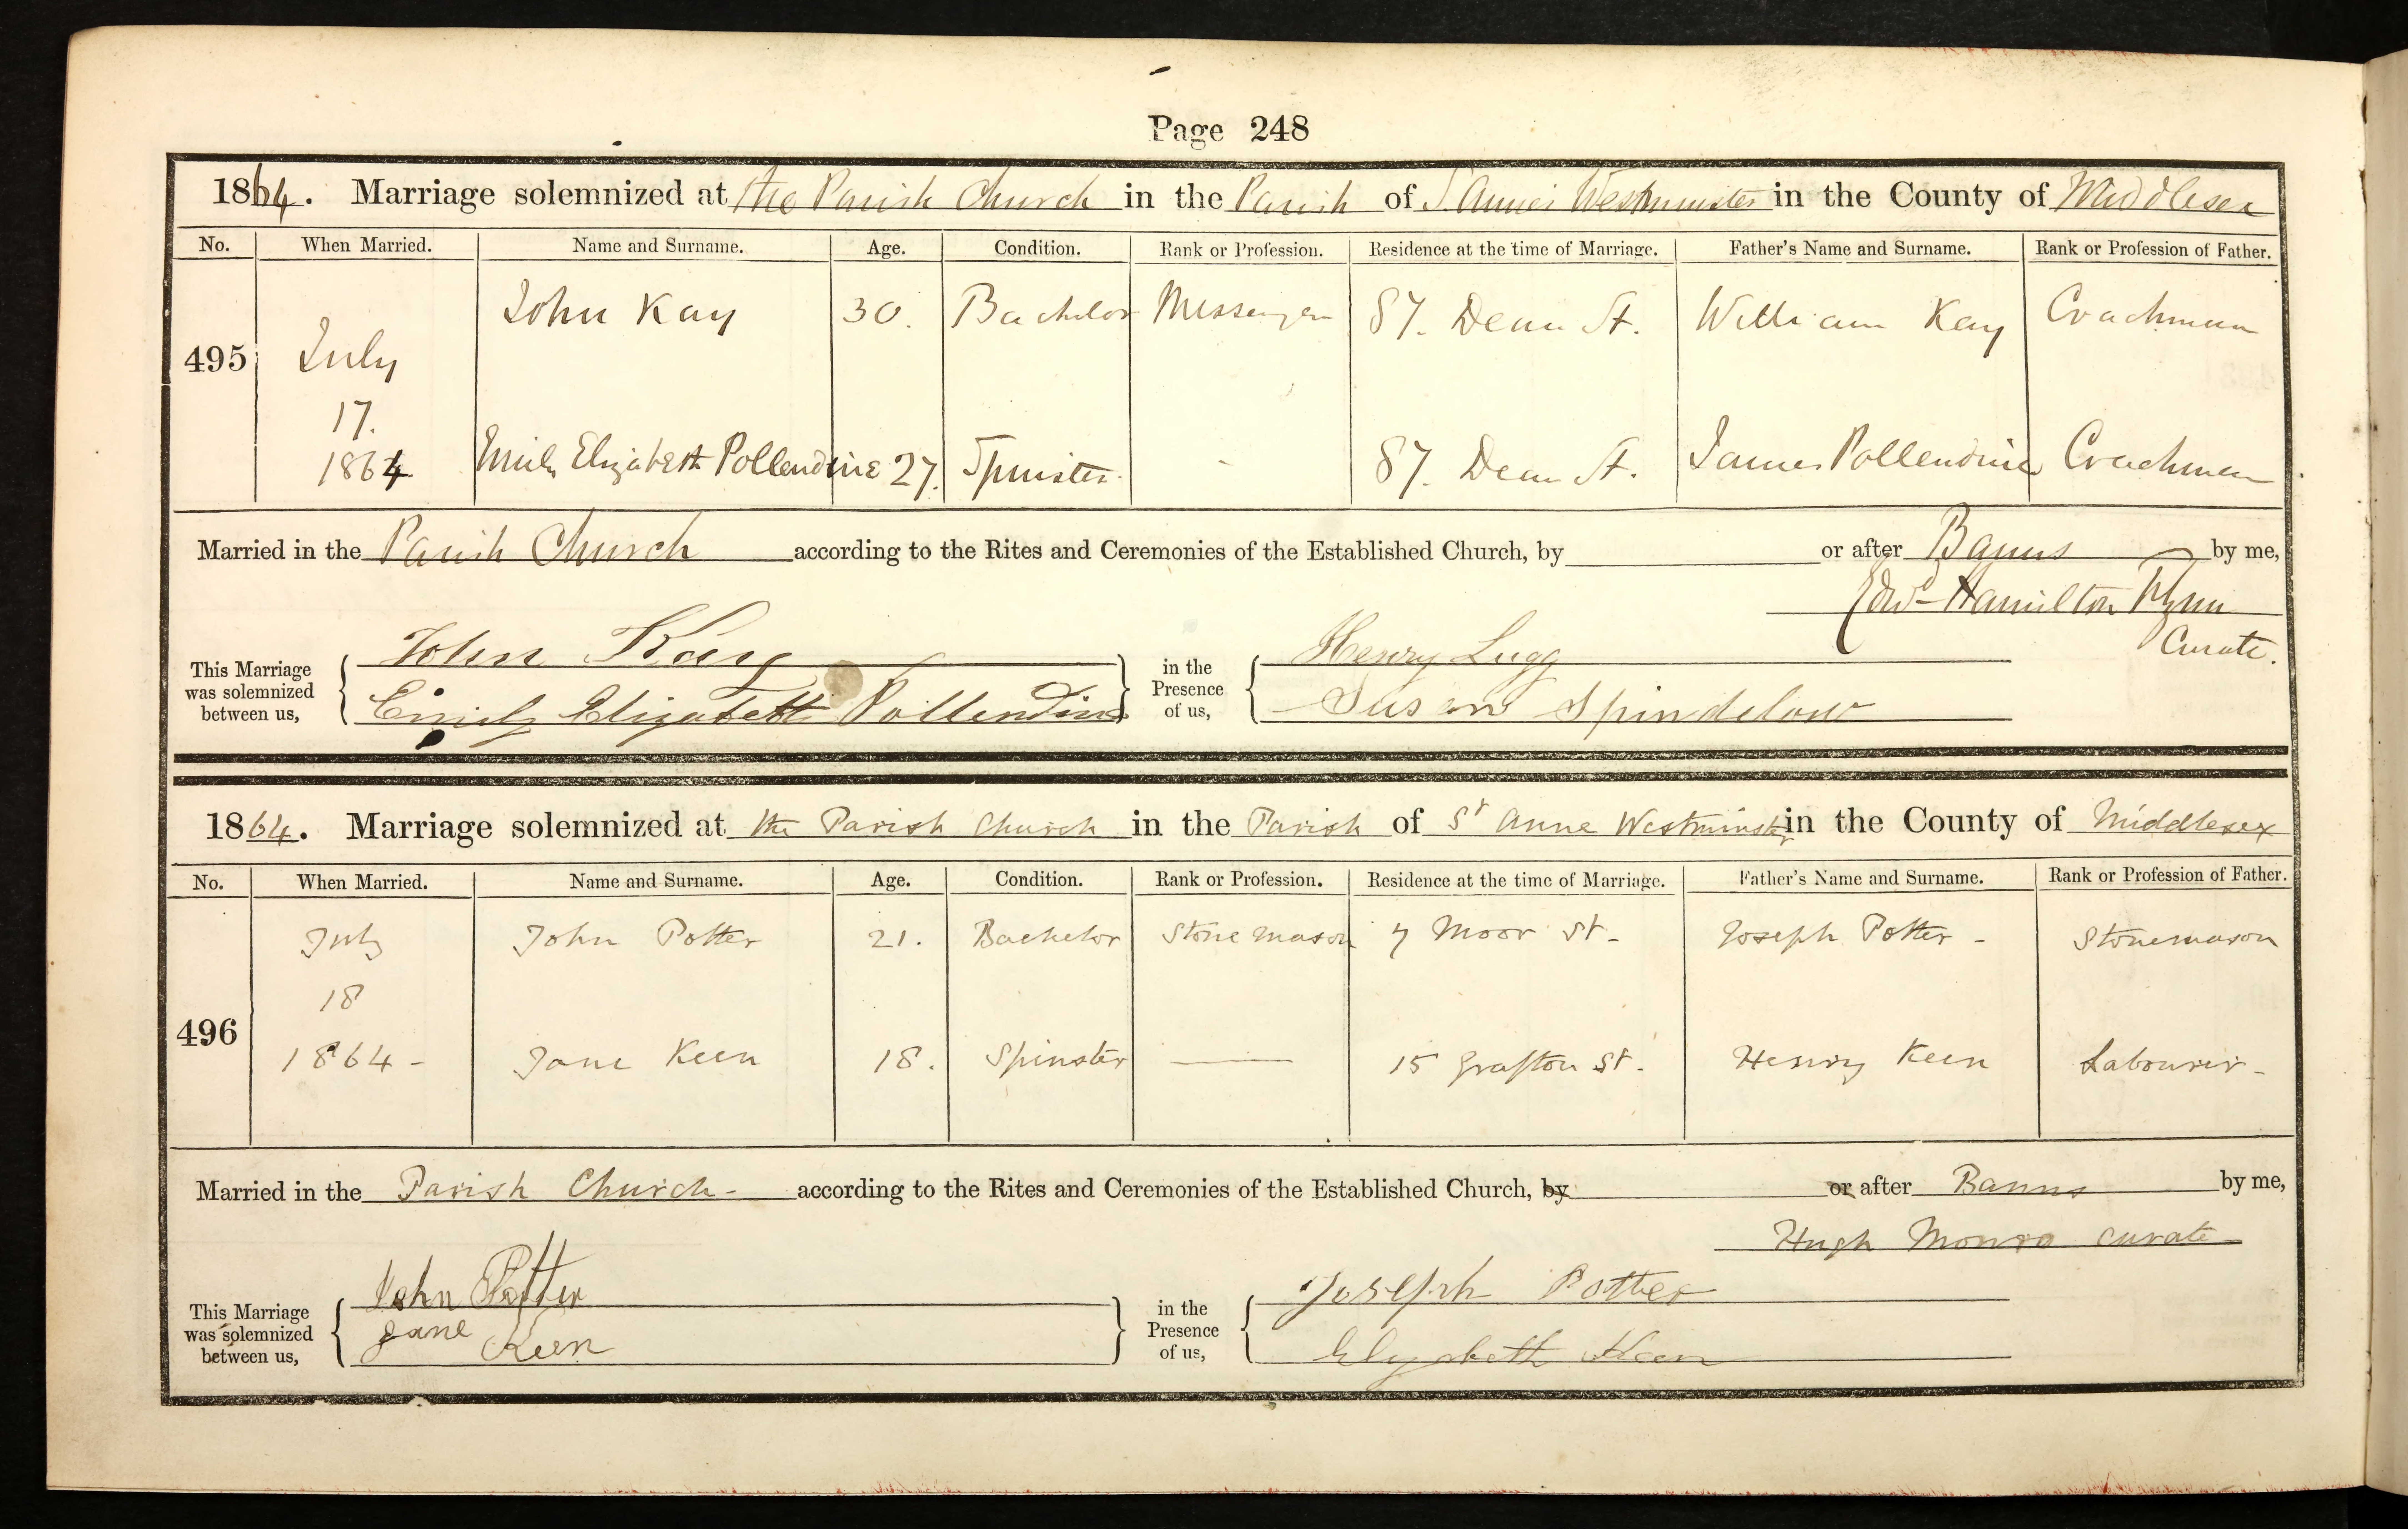 Page 248
1864. Marriage solemnized at the Parish Church in the Parish of S. Anne's Westminster in the County of Middlesex
No. When Married. Name and Surname. Age. Condition. Rank or Profession. Residence at the time of Marriage. Father's Name and Surname. Rank or Profession of Father.
John Kay 30. Bachelor Messenger 87. Dean St. William Kay Coachman
495 July
17.
1864 Emily Elizabeth Pollendine 27. Spinster. - 87. Dean St. James Pollendine Coachman
Married in the Parish Church according to the Rites and Ceremonies of the Established Church, by or after Banns by me,
Edwd Hamilton
Curate.
This Marriage was solemnized between us, John Kay in the Presence of us, Henry Lugg
Emily Elizabeth Pollendine Susan Spindelow
1864. Marriage solemnized at the Parish Church in the Parish of St Anne Westminster in the County of Middlesex
No. When Married. Name and Surname. Age. Condition. Rank or Profession. Residence at the time of Marriage. Father's Name and Surname. Rank or Profession of Father.
July John Potter 21. Bachelor Stone mason 7 Moor St- Joseph Potter - Stonemason
18
496
1864 - Jane Keen 18. Spinster — 15 Grafton St. Henry Keen Labourer -
Married in the Parish Church - according to the Rites and Ceremonies of the Established Church, by or after Banns by me,
Hugh Monro Curate
This Marriage was solemnized between us, John Potter in the Presence of us, Joseph Potter
Jane Keen Elyzabeth Keen